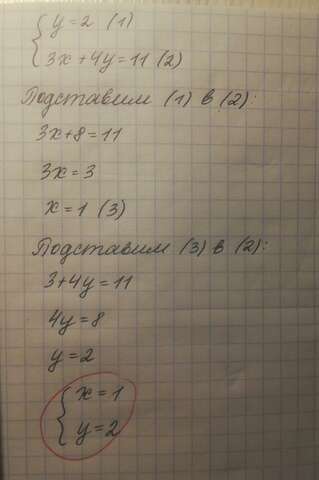 { y = 2 (1)
3x + 4y = 11 (2)
Подставим (1) в (2):
3x+8=11
3x=3
x=1 (3)
Подставим (3) в (2):
3+4y=11
4y=8
y=2
{ x=1
y=2